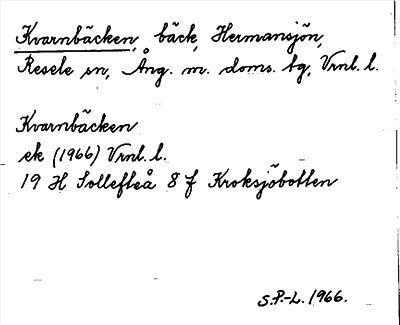 Kvarnbäcken, bäck, Hermansjön,
Resele sn, Ång. m. doms. bg, Vrnl. l.
Kvarnbäcken
ek (1966) Vrnl. l.
19 H Sollefteå 8 f Kroksjöbotten
S.P.-L. 1966.